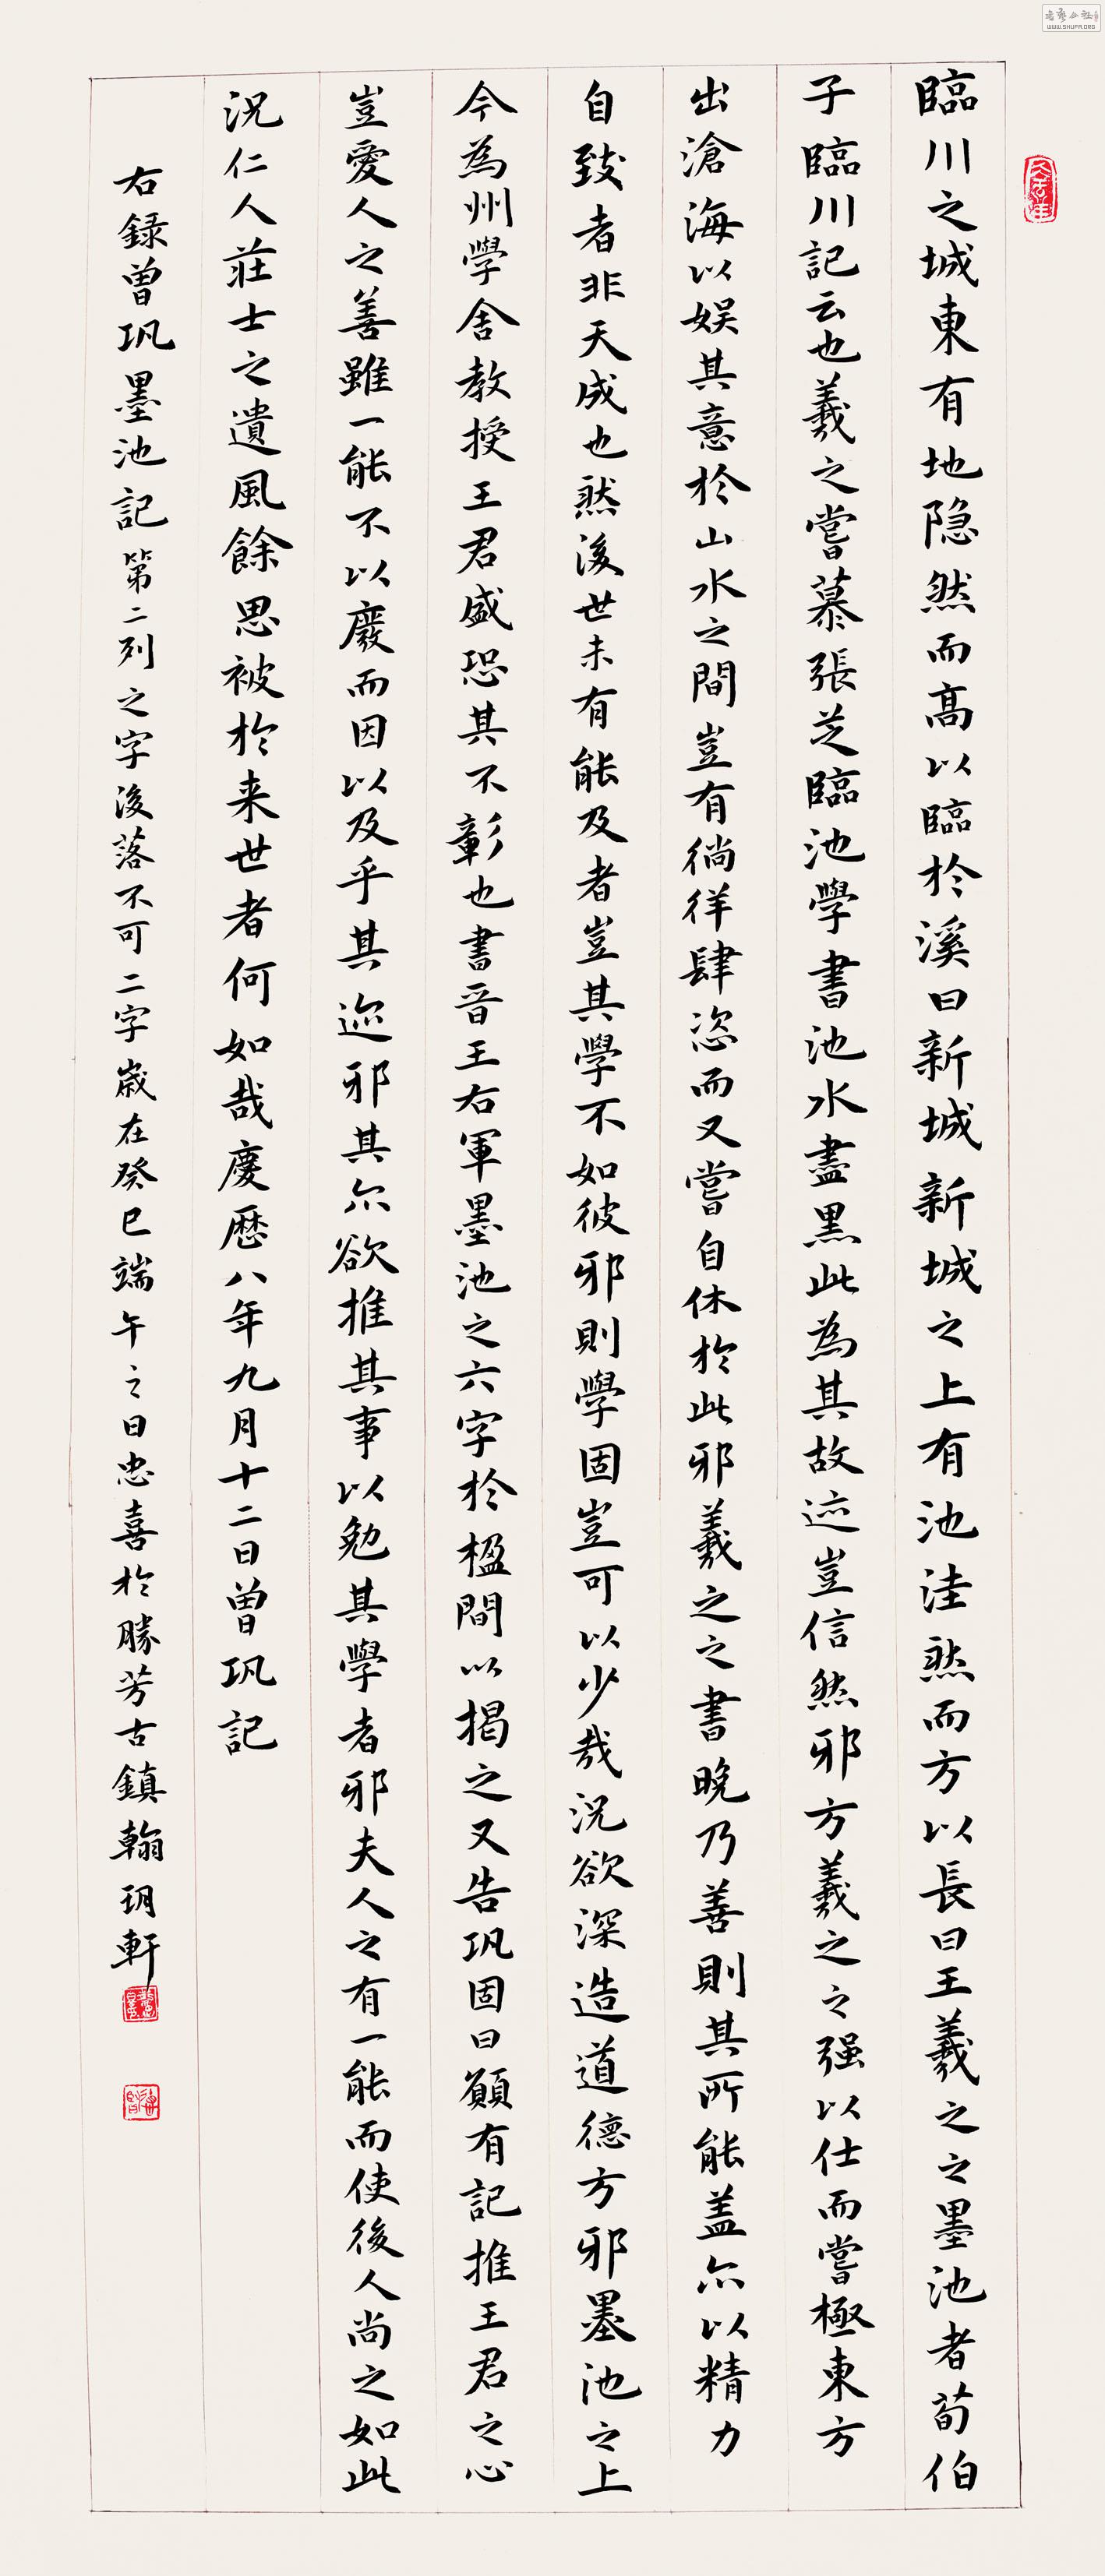 臨川之城東有地隐然而高以臨於溪曰新城新城之上有池洼然而方以長曰王羲之之墨池者荀伯
子臨川記云也羲之嘗慕張芝臨池學書池水盡黑此為其故迹豈信然邪方羲之之强以仕而嘗極東方
出滄海以娱其意於山水之間豈有徜徉肆恣而又嘗自休於此邪羲之之書晚乃善則其所能盖亦以精力
自致者非天成也然後世未有能及者豈其學不如彼邪則學固豈可以少哉況欲深造道德方邪墨池之上
今為州學舍教授王君盛恐其不彰也書晉王右軍墨池之六字於楹間以揭之又告巩固曰願有記推王君之心
豈愛人之善雖一能不以廢而因以及乎其迹邪其亦欲推其事以勉其學者邪夫人之有一能而使後人尚之如此
況仁人莊士之遺風餘思被於来世者何如哉慶歷八年九月十二日曾巩記
右録曾巩墨池記第二列之字後落不可二字歲在癸巳端午之日忠喜於勝芳古鎮翰玥軒
WWW.SHUFA.ORG